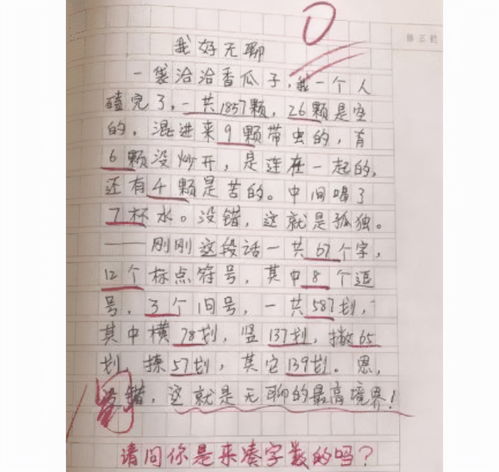 我好无聊
一袋洽洽香瓜子，我一个人
磕完了，一共1857颗，26颗是空
的，混进来9颗带虫的，有
6颗没炒开，是连在一起的，
还有4颗是苦的。中间喝了
7杯水。没错，这就是孤独。
——刚刚这段话一共67个字，
12个标点符号，其中8个逗
号，3个旧号，一共587划，
其中横78划，竖137划，撇65
划 捺57划，其它139划。恩，
没错，这就是无聊的最高境界！
请问你是来凑字数的吗？